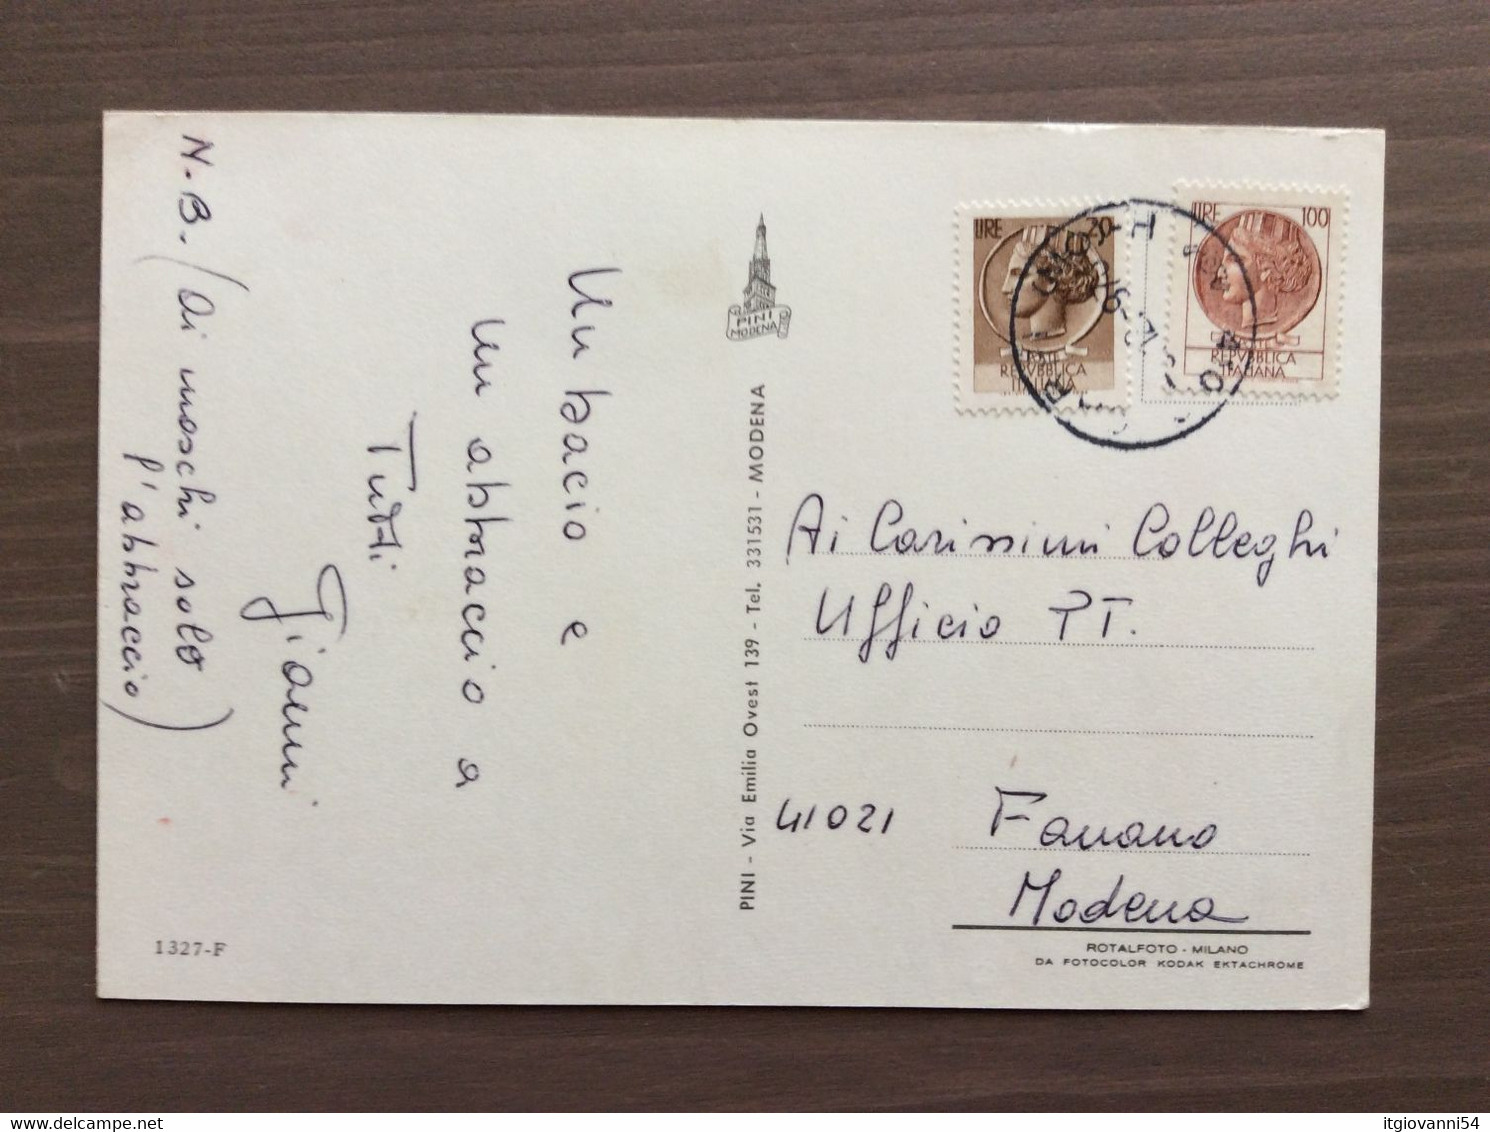 Un bacio e
un abbraccio a
Tutti
Gianni
N.B. (Ai maschi solo
l'abbraccio)
1327-F
PINI
MODENA
PINI - Via Emilia Ovest 139 - Tel. 331531 - MODENA
LIRE 20
REPVBBLICA
ITALIANA
LIRE 100
REPVBBLICA
ITALIANA
Ai Carissimi Colleghi
Ufficio PT.
41021 Fanano
Modena
ROTALFOTO - MILANO
DA FOTOCOLOR KODAK EKTACHROME
delcampe.net
itgiovanni54